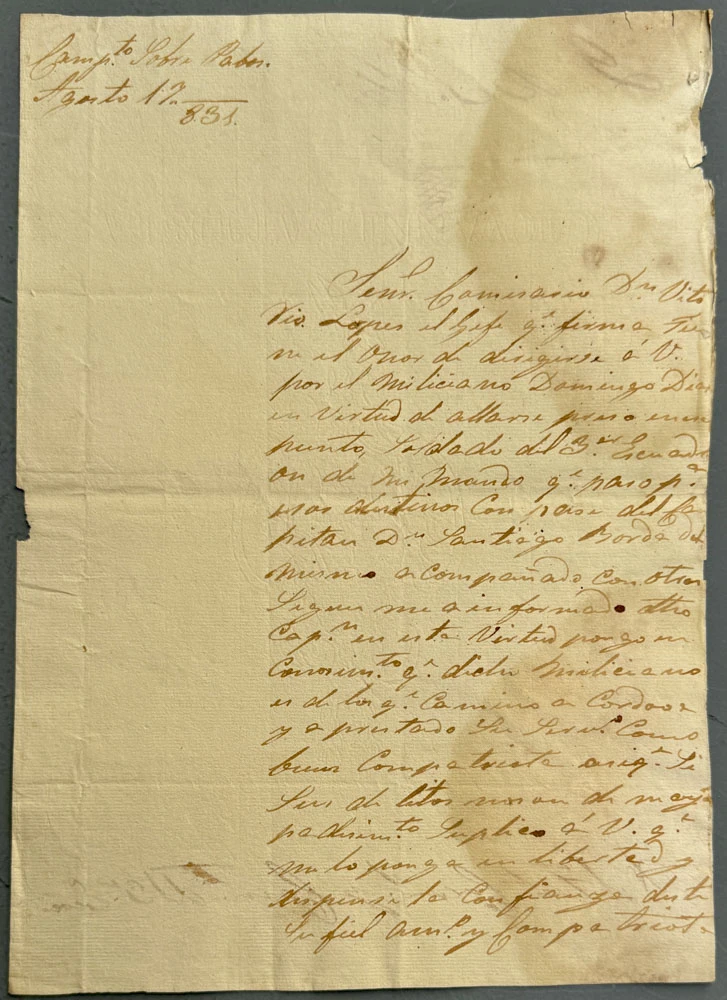 Camp.to Sobre Pabon.
Agosto 17
831.
Señr. Comisario Dn Vito
rio. Lopes el Gefe q.e firma Tie
ne el Onor de dirigirse á V.
por el Miliciano Domingo Dias
en Virtud de allarse preso en ese
punto, Soldado del 3.er Escuadr
on de mi mando q.e paso p.a
esos destinos Con pase del Ca
pitan Dn Santiago Borda del
mismo acompañado, con otros
Segun me a informado dho
Cap.n en esta Virtud pongo en
Conosim.to q.e dicho Miliciano
es de los q.e Camino a Cordova
y a prestado Su Serv.o Como
buen Compatriota asiq.e Si
Sus delitos no son de mayor
padesim.to Suplico á V. q.e
me lo ponga en libertad y
dispense la Confianza de este
Su fiel am.o y Compatriota